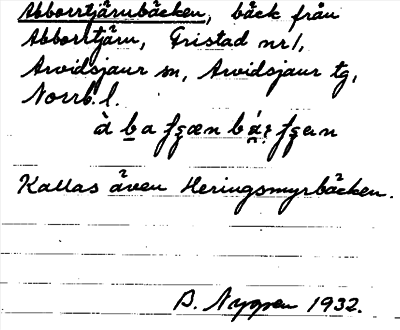 Abborrtjärnbäcken, bäck från
Abborrtjärn, Fristad nr 1,
Arvidsjaur sn, Arvidsjaur tg,
Norrb. l.
Kallas även Heringsmyrbäcken.
B. Nygren 1932.